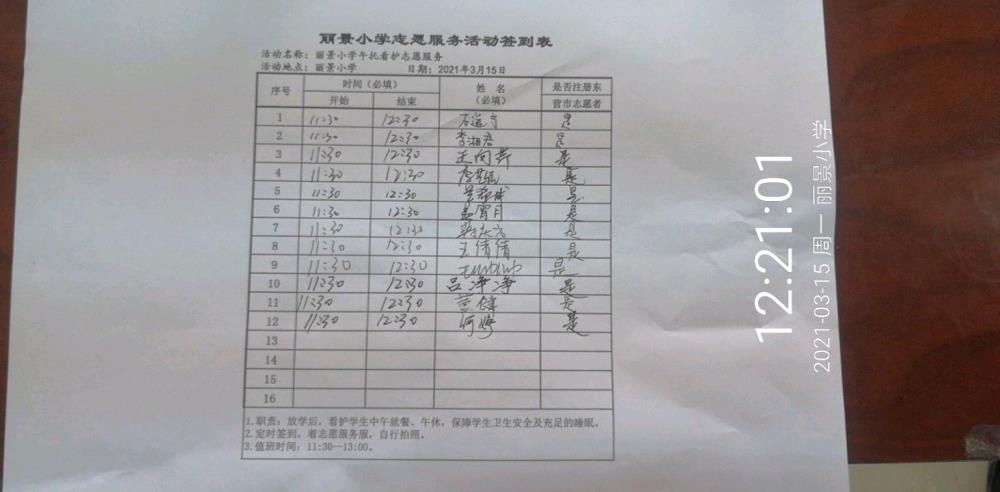 丽景小学志愿服务活动签到表
活动名称：丽景小学午托看护志愿服务
活动地点：丽景小学 日期：2021年3月15日
序号 时间（必填） 姓 名（必填） 是否注册东营市志愿者
开始 结束
1 11:30 12:30 是
2 11:30 12:30 李湘君 是
3 11:30 12:30 王向芹 是
4 11:30 12:30 是
5 11:30 12:30 是
6 11:30 12:30 孟霄月 是
7 11:30 12:30 是
8 11:30 12:30 王倩倩 是
9 11:30 12:30 是
10 11:30 12:30 吕净净 是
11 11:30 12:30 是
12 11:30 12:30 何婷 是
13
14
15
16
1.职责：放学后，看护学生中午就餐、午休，保障学生卫生安全及充足的睡眠。
2.定时签到，着志愿服务服，自行拍照。
3.值班时间：11:30—13:00。
12:21:01
2021-03-15 周一 丽景小学